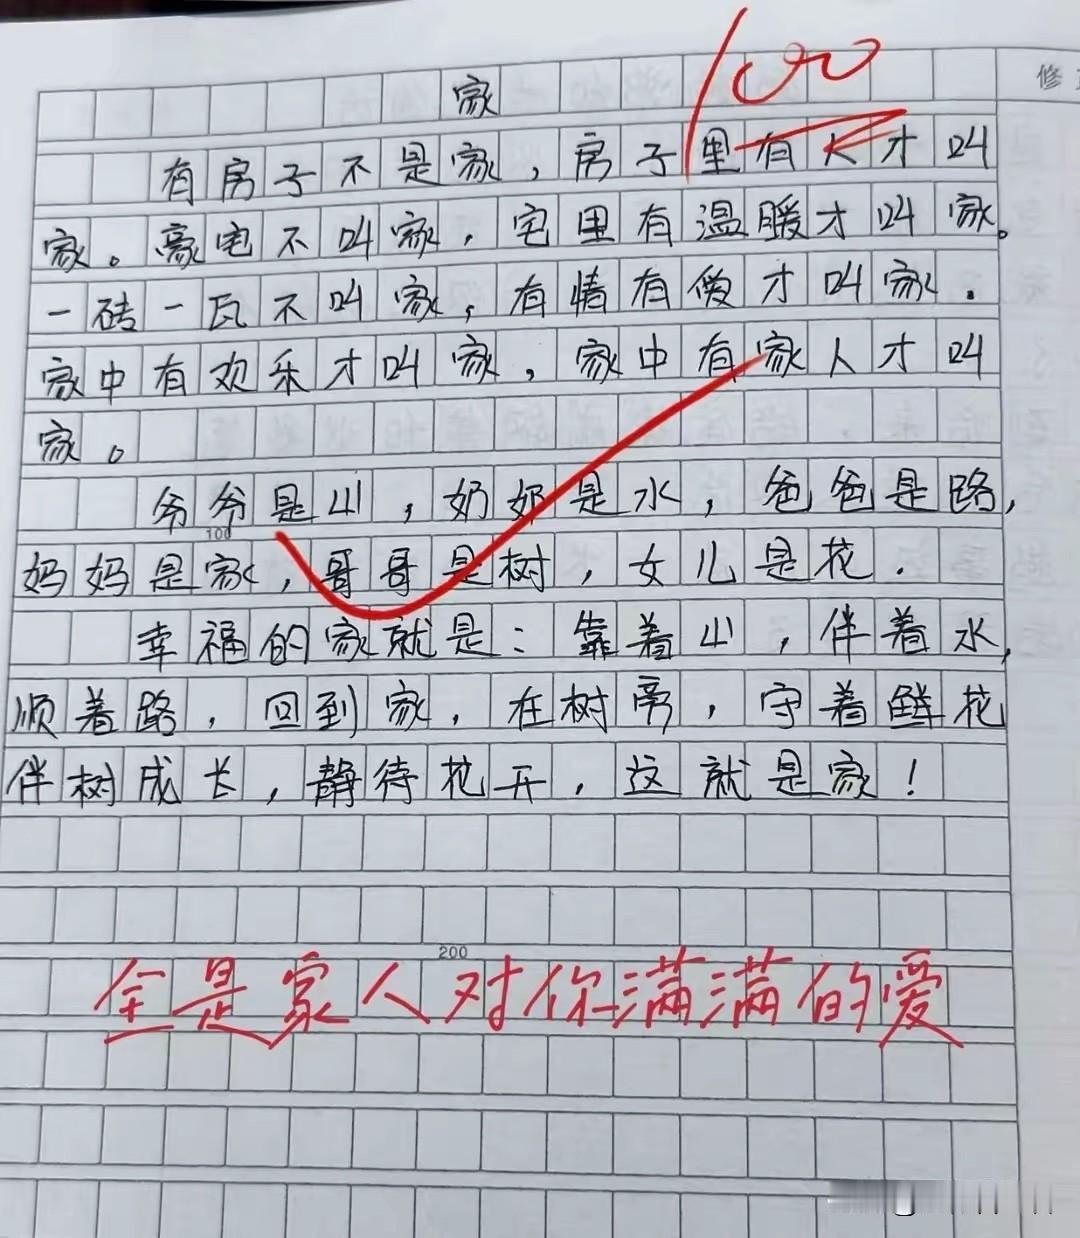 100
修
家
有房子不是家，房子里有人才叫
家。豪宅不叫家，宅里有温暖才叫家。
一砖一瓦不叫家，有情有爱才叫家．
家中有欢乐才叫家，家中有家人才叫
家。
爷爷是山，奶奶是水，爸爸是路，
100
妈妈是家，哥哥是树，女儿是花．
幸福的家就是：靠着山，伴着水，
顺着路，回到家，在树旁，守着鲜花
伴树成长，静待花开，这就是家！
200
全是家人对你满满的爱